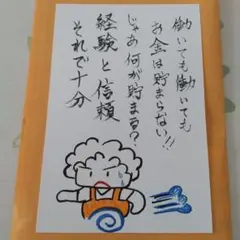 働いても働いても
お金は貯まらない!!
じゃあ何が貯まる?
経験と信頼
それで十分